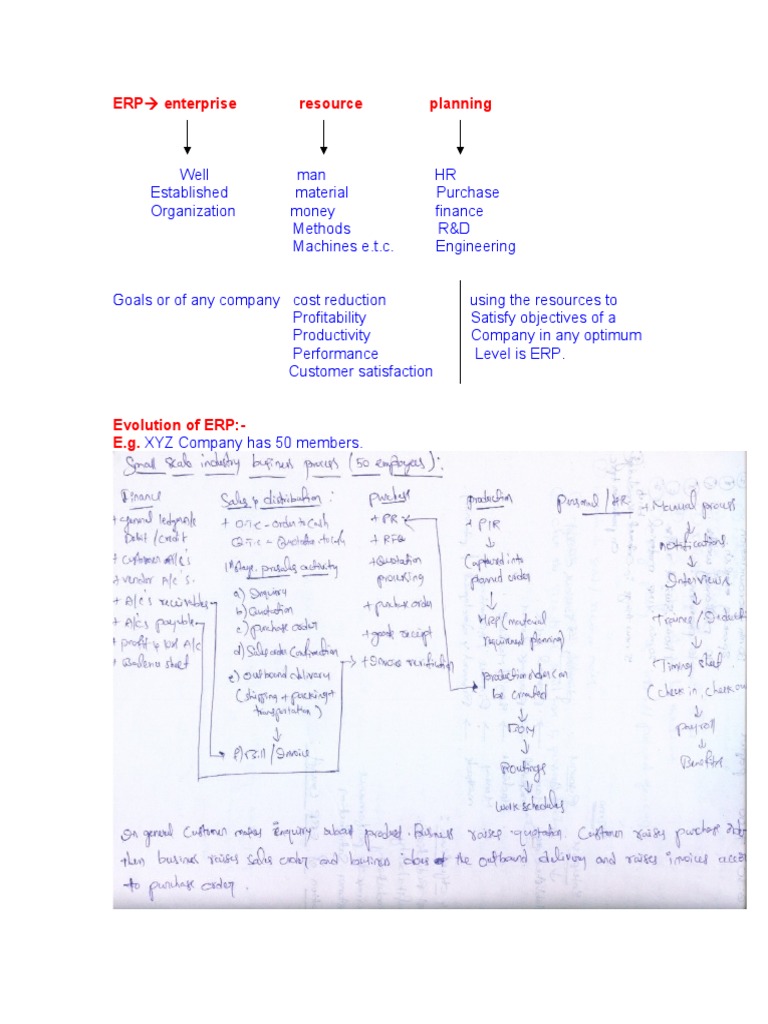 ERP→ enterprise resource planning
Well man HR
Established material Purchase
Organization money finance
Methods R&D
Machines e.t.c. Engineering
Goals or of any company cost reduction using the resources to
Profitability Satisfy objectives of a
Productivity Company in any optimum
Performance Level is ERP.
Customer satisfaction
Evolution of ERP:-
E.g. XYZ Company has 50 members.
Small Scale industry business process (50 employees):
Finance
+ general ledger
Debit / Credit
+ customer A/c's
+ vendor A/c's.
+ A/c's receivables
+ A/Cs payable
+ profit & loss A/C
+ Balance sheet
Sales & distribution :
+ O.T.C - order to Cash
Q.T.C = Quotation to Cash
1st stage. presales activity
a) Inquiry
b) Quotation
c) purchase order
d) Sales order Confirmation
e) outbound delivery
(shipping + packing +
transportation)
f) Bill / Invoice
purchase
+ PR
+ RFQ
+ Quotation
processing
+ purchase order
+ goods receipt
+ Invoice verification
production
+ PIR
Captured into
planned order
MRP (material
requirement planning)
production orders can
be created
BOM
Routings
work schedules
Personal / HR
+ Manual process
notifications
Interviews
Trainee /
Timing sheet
(check in, check out
payroll
Benefits
In general Customer makes Enquiry about product. Business raises quotation. Customer raises purchase
then business raises sales order and business does the outbound delivery and raises invoices
to purchase order.